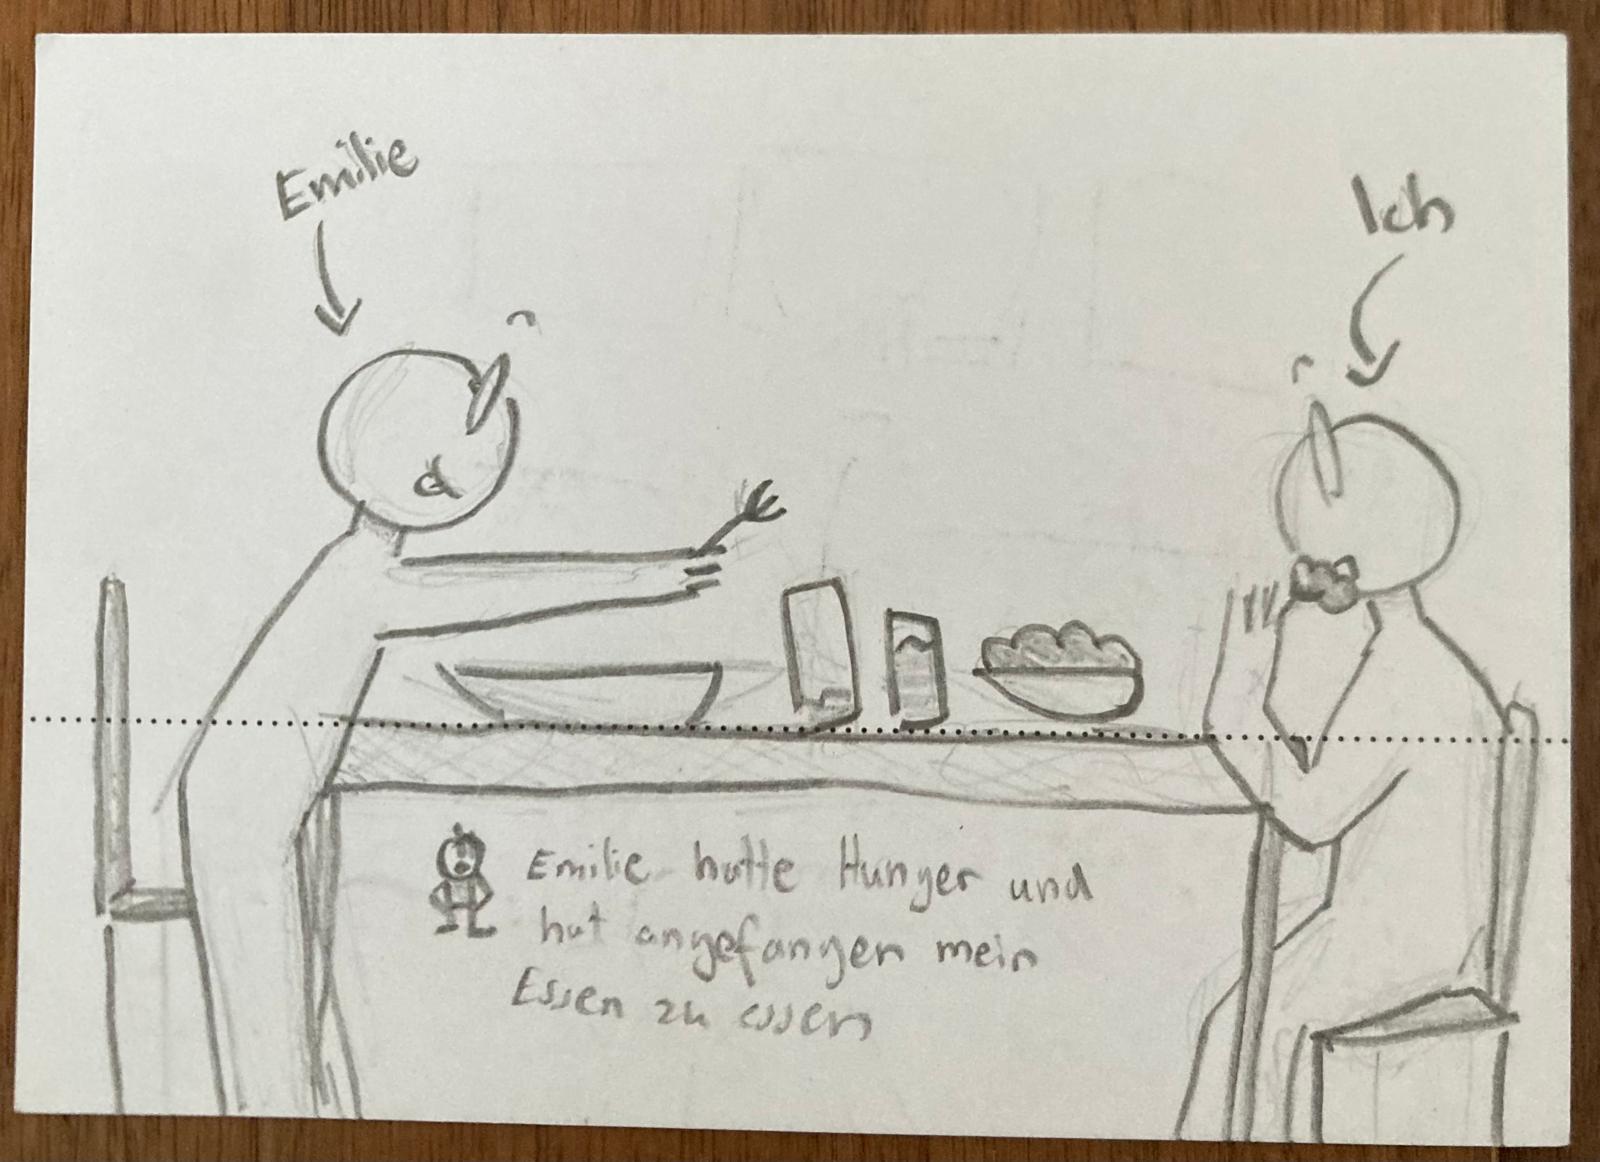 Emilie
Ich
Emilie hatte Hunger und
hat angefangen mein
Essen zu essen